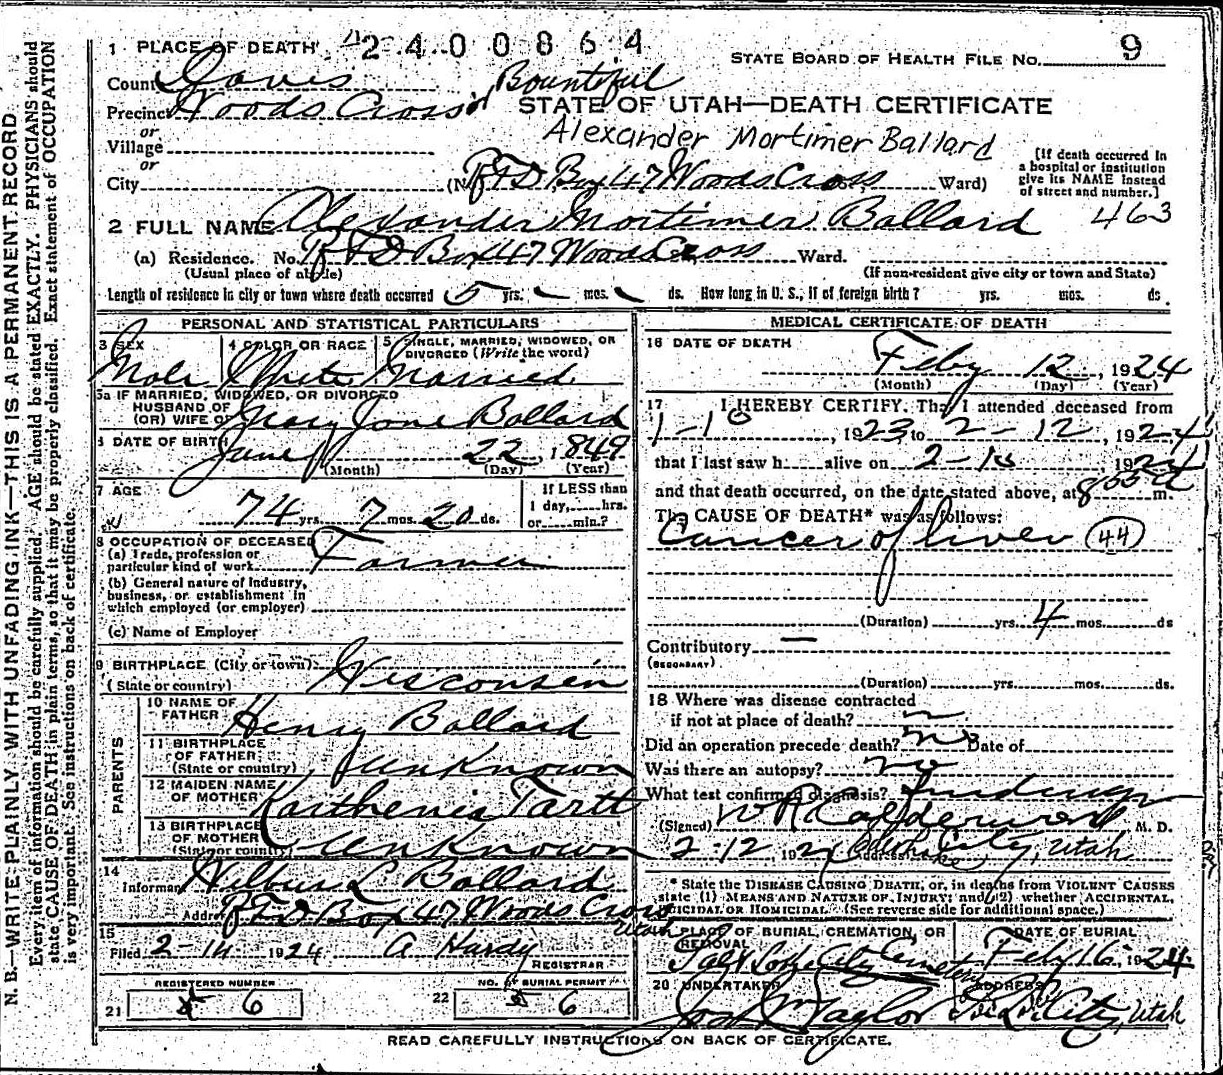 1 PLACE OF DEATH 2400864
STATE BOARD OF HEALTH FILE No. 9
County Davis Bountiful
Precinct Woods Cross
STATE OF UTAH—DEATH CERTIFICATE
or
Village
Alexander Mortimer Ballard
or
City (No. RFD Box 47 Woods Cross Ward)
[If death occurred in
a hospital or institution
give its NAME instead
of street and number.]
2 FULL NAME Alexander Mortimer Ballard 463
(a) Residence. No. RFD Box 47 Woods Cross Ward.
(Usual place of abode) (If non-resident give city or town and State)
Length of residence in city or town where death occurred 5 yrs. – mos. – ds. How long in U. S., if of foreign birth? yrs. mos. ds.
PERSONAL AND STATISTICAL PARTICULARS
3 SEX 4 COLOR OR RACE 5 SINGLE, MARRIED, WIDOWED, OR
DIVORCED (Write the word)
Male White Married
5a IF MARRIED, WIDOWED, OR DIVORCED
HUSBAND OF
(OR) WIFE OF Mary Jane Ballard
6 DATE OF BIRTH June 22, 1849
(Month) (Day) (Year)
7 AGE 74 yrs. 7 mos. 20 ds.
If LESS than
1 day, hrs.
or min.?
8 OCCUPATION OF DECEASED
(a) Trade, profession or
particular kind of work Farmer
(b) General nature of Industry,
business, or establishment in
which employed (or employer)
(c) Name of Employer
9 BIRTHPLACE (City or town)
(State or country) Wisconsin
PARENTS
10 NAME OF
FATHER Henry Ballard
11 BIRTHPLACE
OF FATHER
(State or country) unknown
12 MAIDEN NAME
OF MOTHER Karthenia Tartt
13 BIRTHPLACE
OF MOTHER
(State or country) Unknown
14
Informant Wilbur L Ballard
Address RFD Box 47 Woods Cross
Utah
15
Filed 2-14 1924 A Hardy
REGISTRAR
REGISTERED NUMBER
21 6
NO. OF BURIAL PERMIT
22 6
MEDICAL CERTIFICATE OF DEATH
16 DATE OF DEATH
Feby 12, 1924
(Month) (Day) (Year)
17 I HEREBY CERTIFY, That I attended deceased from
1-10, 1923, to 2-12, 1924
that I last saw h alive on 2-10 1924
and that death occurred, on the date stated above, at 8 m.
The CAUSE OF DEATH* was as follows:
Cancer of liver (44)
(Duration) yrs. 4 mos. ds
Contributory –
(SECONDARY)
(Duration) yrs. mos. ds.
18 Where was disease contracted
if not at place of death? –
Did an operation precede death? no Date of
Was there an autopsy? no
What test confirmed diagnosis? findings
(Signed) W H Calderwood M. D.
2-12, 1924 (Address) City, Utah
* State the DISEASE CAUSING DEATH, or, in deaths from VIOLENT CAUSES
state (1) MEANS AND NATURE OF INJURY; and (2) whether ACCIDENTAL,
SUICIDAL OR HOMICIDAL. (See reverse side for additional space.)
PLACE OF BURIAL, CREMATION, OR
REMOVAL
Salt Lake City Cemetery
DATE OF BURIAL
Feby 16, 1924
20 UNDERTAKER ADDRESS
Jos Wm Taylor Salt L City, Utah
READ CAREFULLY INSTRUCTIONS ON BACK OF CERTIFICATE.
N. B.—WRITE PLAINLY, WITH UNFADING INK—THIS IS A PERMANENT RECORD
Every item of information should be carefully supplied. AGE should be stated EXACTLY. PHYSICIANS should
state CAUSE OF DEATH in plain terms, so that it may be properly classified. Exact statement of OCCUPATION
is very important. See instructions on back of certificate.